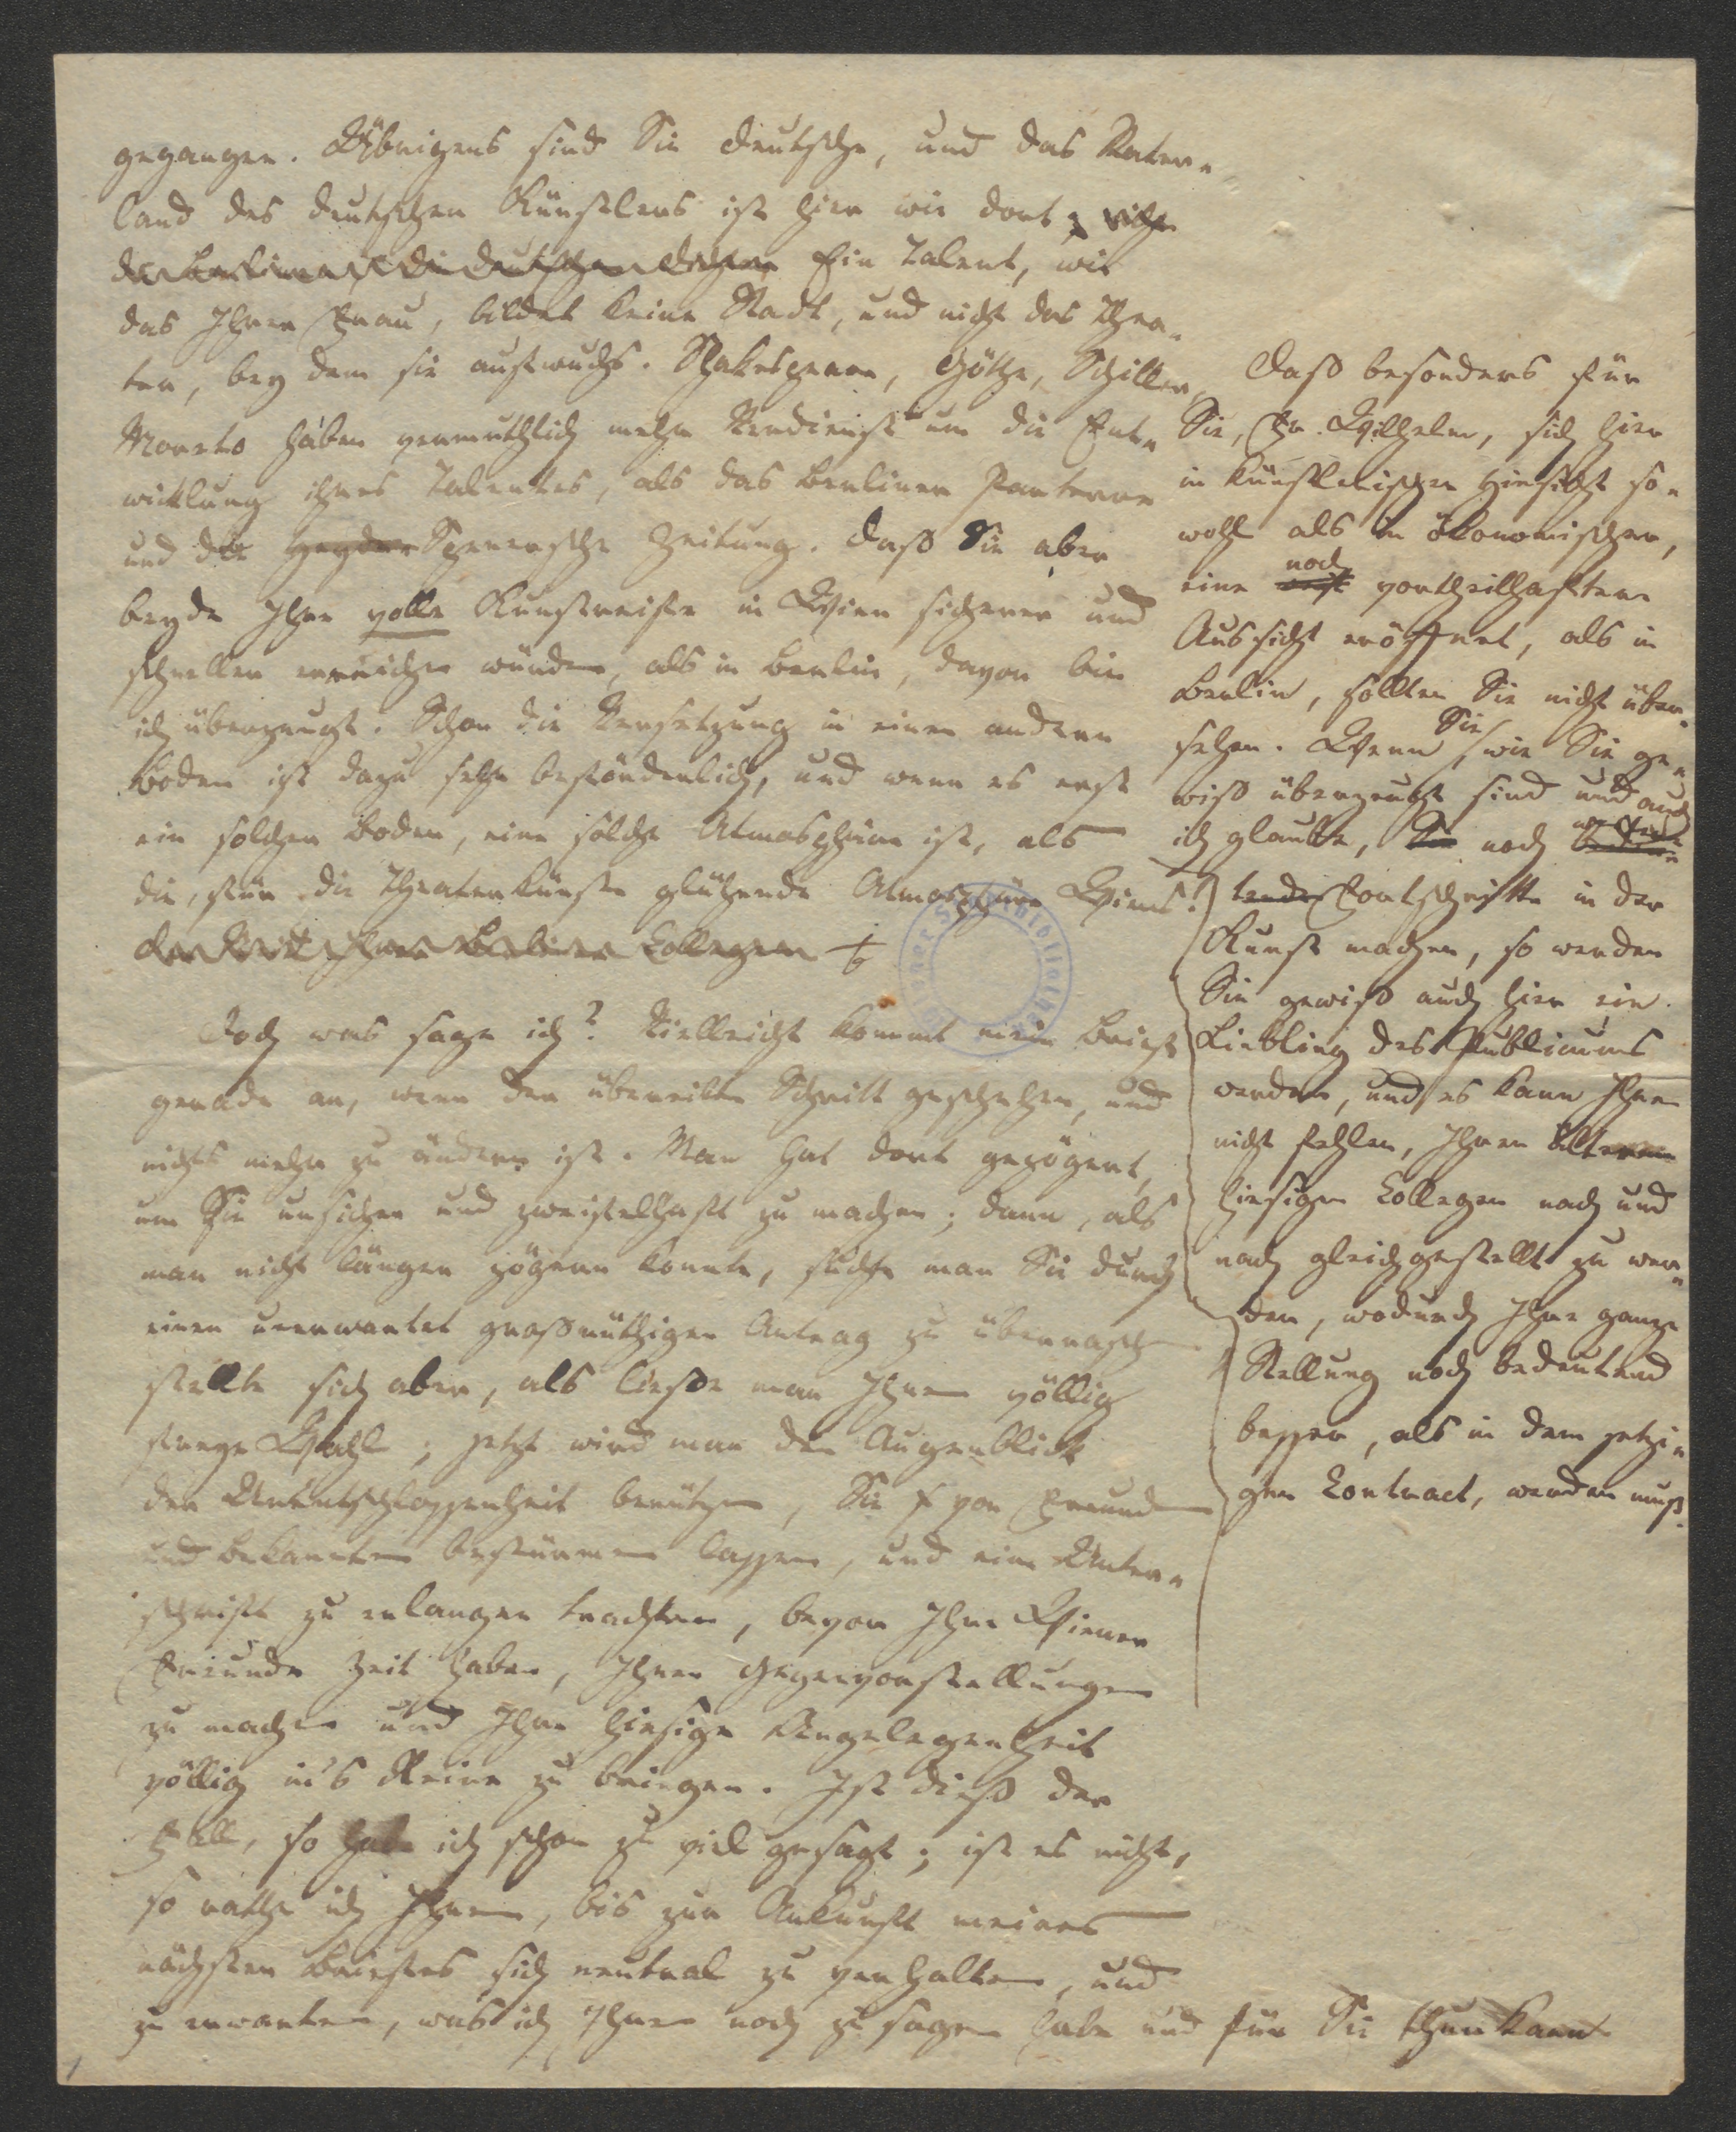 gegangen. Übrigens sind Sie Deutsche, und das Vater-
land des deutschen Künstlers ist hier wie dort;
Ein Talent, wie
das Ihrer Frau, bildet keine Stadt, und nicht das Thea-
ter, bey dem sie aufwuchs. Shakespeare, Göthe, Schiller,
Moreto haben vermuthlich mehr Verdienst um die Ent-
wicklung ihres Talentes, als das Berliner Parterre
und die Spenersche Zeitung. Daß Sie aber
beyde Ihre volle Kunstreife in Wien sicherer und
schneller erreichen würden, als in Berlin, davon bin
ich überzeugt. Schon die Versetzung in einen andern
Boden ist dazu sehr beförderlich, und wenn es erst
ein solcher Boden, eine solche Atmosphäre ist, als
die, für die Theaterkünste glühende Atmosphäre Wiens!
der Neid Ihrer Berliner Collegen +
Doch was sage ich? Vielleicht kömmt mein Brief
gerade an, wenn der übereilte Schritt geschehen, und
nichts mehr zu ändern ist. Man hat dort gezögert,
um Sie unsicher und zweifelhaft zu machen; dann, als
man nicht länger zögern konnte, suchte man Sie durch
einen unerwartet großmüthigen Antrag zu überraschen
stellte sich aber, als ließe man Ihnen völlig
freye Wahl; jetzt wird man den Augenblick
der Unentschlossenheit benützen, Sie von Freunden
und Bekannten bestürmen lassen, und eine Unter-
schrift zu erlangen trachten, bevor Ihre Wiener
Freunde Zeit haben, Ihnen Gegenvorstellungen
zu machen und Ihre hiesige Angelegenheit
völlig in's Reine zu bringen. Ist dieß der
Fall, so habe ich schon zu viel gesagt; ist es nicht,
so rathe ich Ihnen, bis zur Ankunft meines
nächsten Briefes sich neutral zu verhalten, und
zu erwarten, was ich Ihnen noch zu sagen habe und für Sie thun kann
Daß besonders für
Sie, Hr. Wilhelm, sich hier
in künstlerischer Hinsicht so-
wohl als in ökonomischer,
noch
eine vortheilhaftere
Aussicht eröffnet, als in
Berlin, sollten Sie nicht über-
sehen. Wenn Sie, wie Sie ge-
wiß überzeugt sind und auch
ich glaube, noch
Fortschritte in der
Kunst machen, so werden
Sie gewiß auch hier ein
Liebling des Publicums
werden, und es kann Ihnen
nicht fehlen, Ihren älteren
hiesigen Collegen nach und
nach gleichgestellt zu wer-
den, wodurch Ihre ganze
Stellung noch bedeutend
besser, als in dem jetzi-
gen Contract, werden muß.